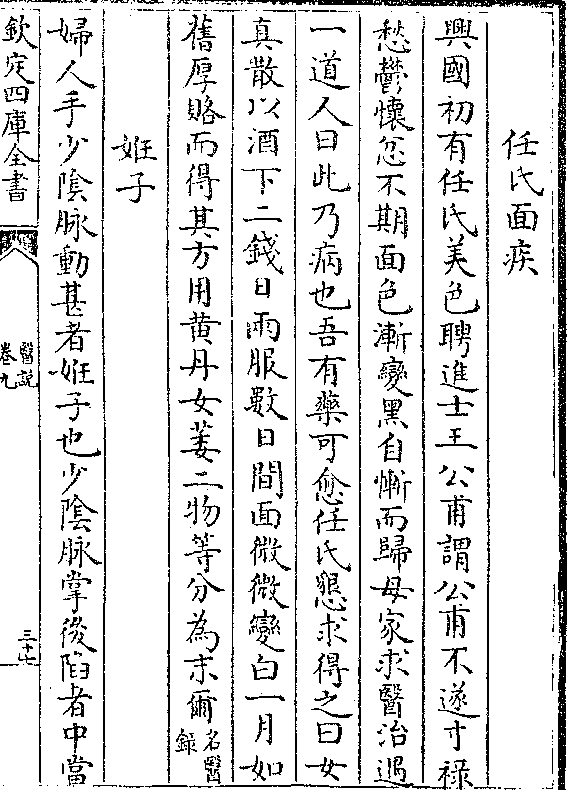 任氏面疾
興國初有任氏美色聘進士王公甫謂公甫不遂寸祿
愁鬱懷忿不期面色漸變黑自慚而歸母家求醫治遇
一道人曰此乃病也吾有藥可愈任氏懇求得之曰女
真散以酒下二錢日兩服數日間面微微變白一月如
舊厚賂而得其方用黃丹女萎二物等分為末爾名醫錄
姙子
婦人手少陰脉動甚者姙子也少陰脉掌後陷者中當
欽定四庫全書
醫說
卷九
三十七